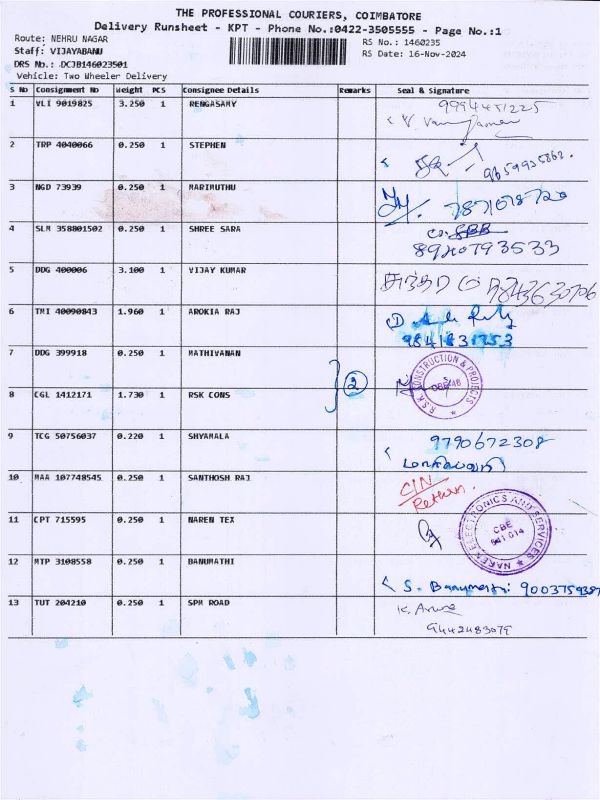 THE PROFESSIONAL COURIERS, COIMBATORE
Delivery Runsheet - KPT - Phone No.:0422-3505555 - Page No.:1
Route: NEHRU NAGAR
RS No.: 1460235
Staff: VIJAYABANU
RS Date: 16-Nov-2024
DRS No.: DCJB146023501
Vehicle: Two Wheeler Delivery
S No Consignment No Weight PCS Consignee Details Remarks Seal & Signature
1 VLI 9019825 3.250 1 RENGASAMY
2 TRP 4040066 0.250 1 STEPHEN
3 NGD 73939 0.250 1 MARIMUTHU
4 SLM 358801502 0.250 1 SHREE SARA
8920793533
5 DDG 400006 3.100 1 VIJAY KUMAR
9843630706
6 TMI 40090843 1.960 1 AROKIA RAJ
9841831753
7 DDG 399918 0.250 1 MATHIVANAN
2
R.S.K CONSTRUCTION & PROJECTS
8 CGL 1412171 1.730 1 RSK CONS
9 TCG 50756037 0.220 1 SHYAMALA
9790672308
10 MAA 107748545 0.250 1 SANTHOSH RAJ
CIN
Return.
11 CPT 715595 0.250 1 NAREN TEX
NAREN ELECTRONICS AND SERVICES
CBE
641 014
12 MTP 3108558 0.250 1 BANUMATHI
S. Banumathi 9003759387
13 TUT 204210 0.250 1 SPM ROAD
9442483079